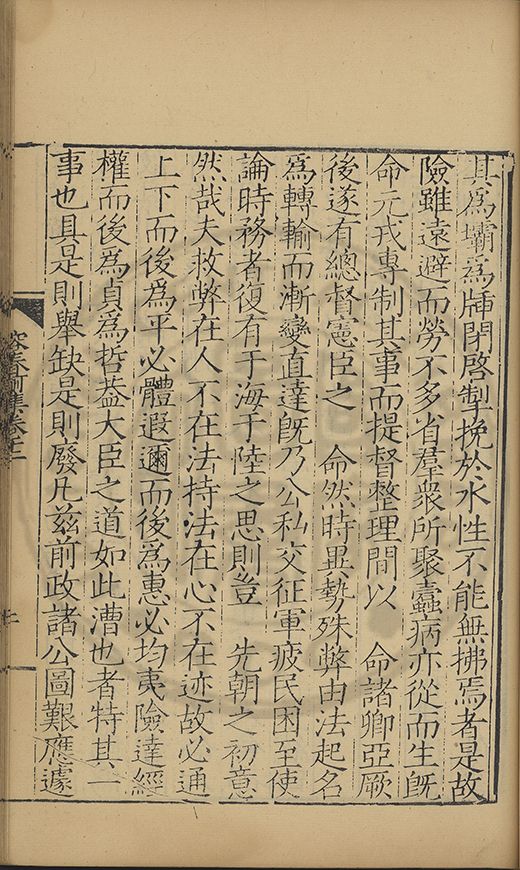 其為壩為牐閉啓掣挽於水性不能無拂焉者是故
險雖遠避而勞不多省羣衆所聚蠧病亦從而生旣
命元戎專制其事而提督整理間以　命諸卿亞厥
後遂有總督憲臣之　命然時異勢殊弊由法起名
為轉輸而漸變直達旣乃公私交征軍疲民困至使
論時務者復有于海于陸之思則豈　先朝之初意
然哉夫救弊在人不在法持法在心不在迹故必通
上下而後為平必體遐邇而後為惠必均夷險達經
權而後為貞為哲葢大臣之道如此漕也者特其一
事也具是則舉缺是則廢凡兹前政諸公圖艱應遽
容春前集卷十二